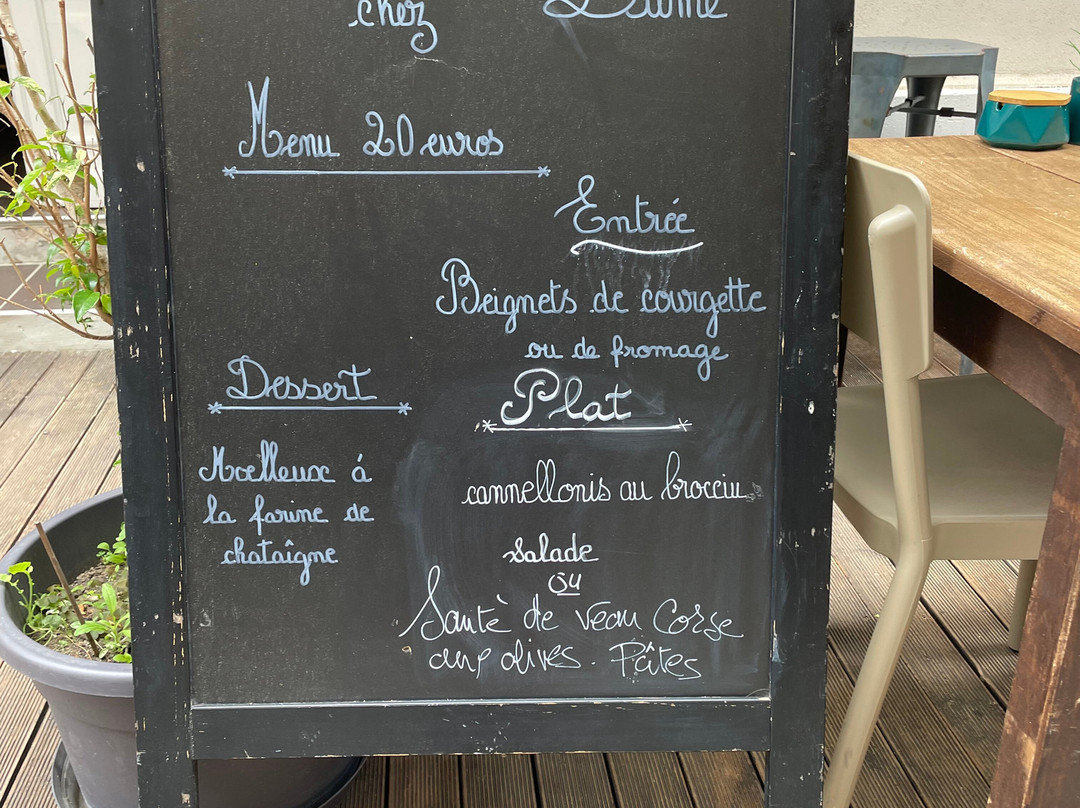 chez
Menu 20 euros
Entrée
Beignets de courgette
ou de fromage
Plat
cannellonis au brocciu
salade
ou
Sauté de veau Corse
aux olives. Pâtes
Dessert
Moelleux à
la farine de
chataîgne